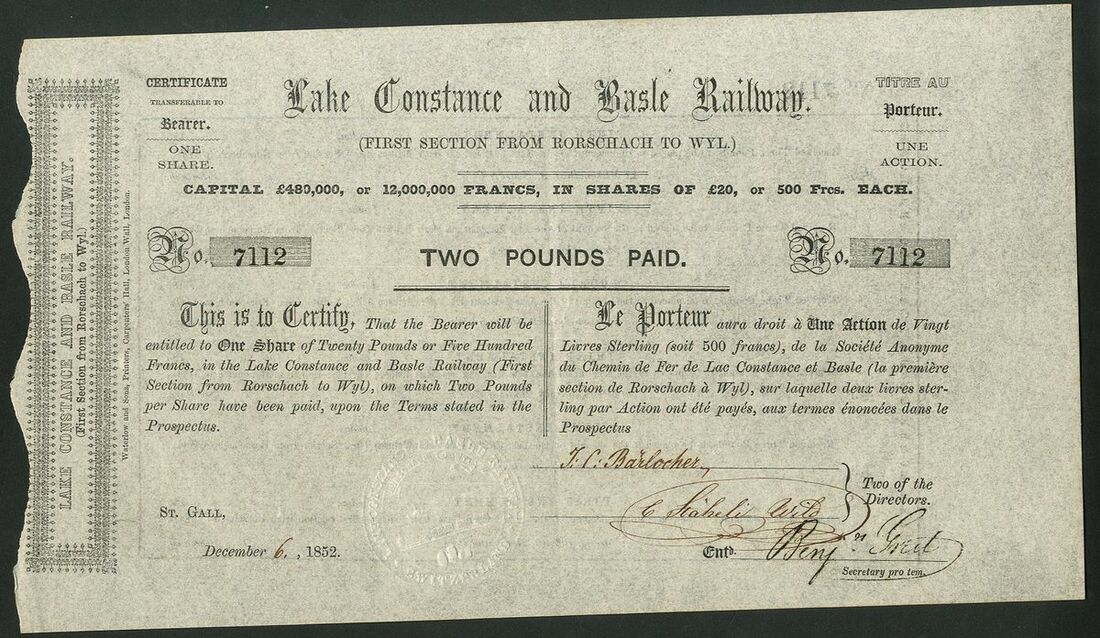 LAKE CONSTANCE AND BASLE RAILWAY.
(First Section from Rorschach to Wyl.)
Waterlow and Sons, Printers, Carpenters' Hall, London Wall, London.
CERTIFICATE
TRANSFERABLE TO
Bearer.
ONE
SHARE.
Lake Constance and Basle Railway.
(FIRST SECTION FROM RORSCHACH TO WYL.)
TITRE AU
Porteur.
UNE
ACTION.
CAPITAL £480,000, or 12,000,000 FRANCS, IN SHARES OF £20, or 500 Frcs. EACH.
No. 7112
TWO POUNDS PAID.
No. 7112
This is to Certify, That the Bearer will be
entitled to One Share of Twenty Pounds or Five Hundred
Francs, in the Lake Constance and Basle Railway (First
Section from Rorschach to Wyl), on which Two Pounds
per Share have been paid, upon the Terms stated in the
Prospectus.
Le Porteur aura droit à Une Action de Vingt
Livres Sterling (soit 500 francs), de la Société Anonyme
du Chemin de Fer de Lac Constance et Basle (la première
section de Rorschach à Wyl), sur laquelle deux livres ster-
ling par Action ont été payés, aux termes énoncées dans le
Prospectus
J. C. Bärlocher
C Stähelis Wild
Two of the
Directors.
ST. GALL,
December 6, 1852.
Entd.
Benjn
Secretary pro tem.